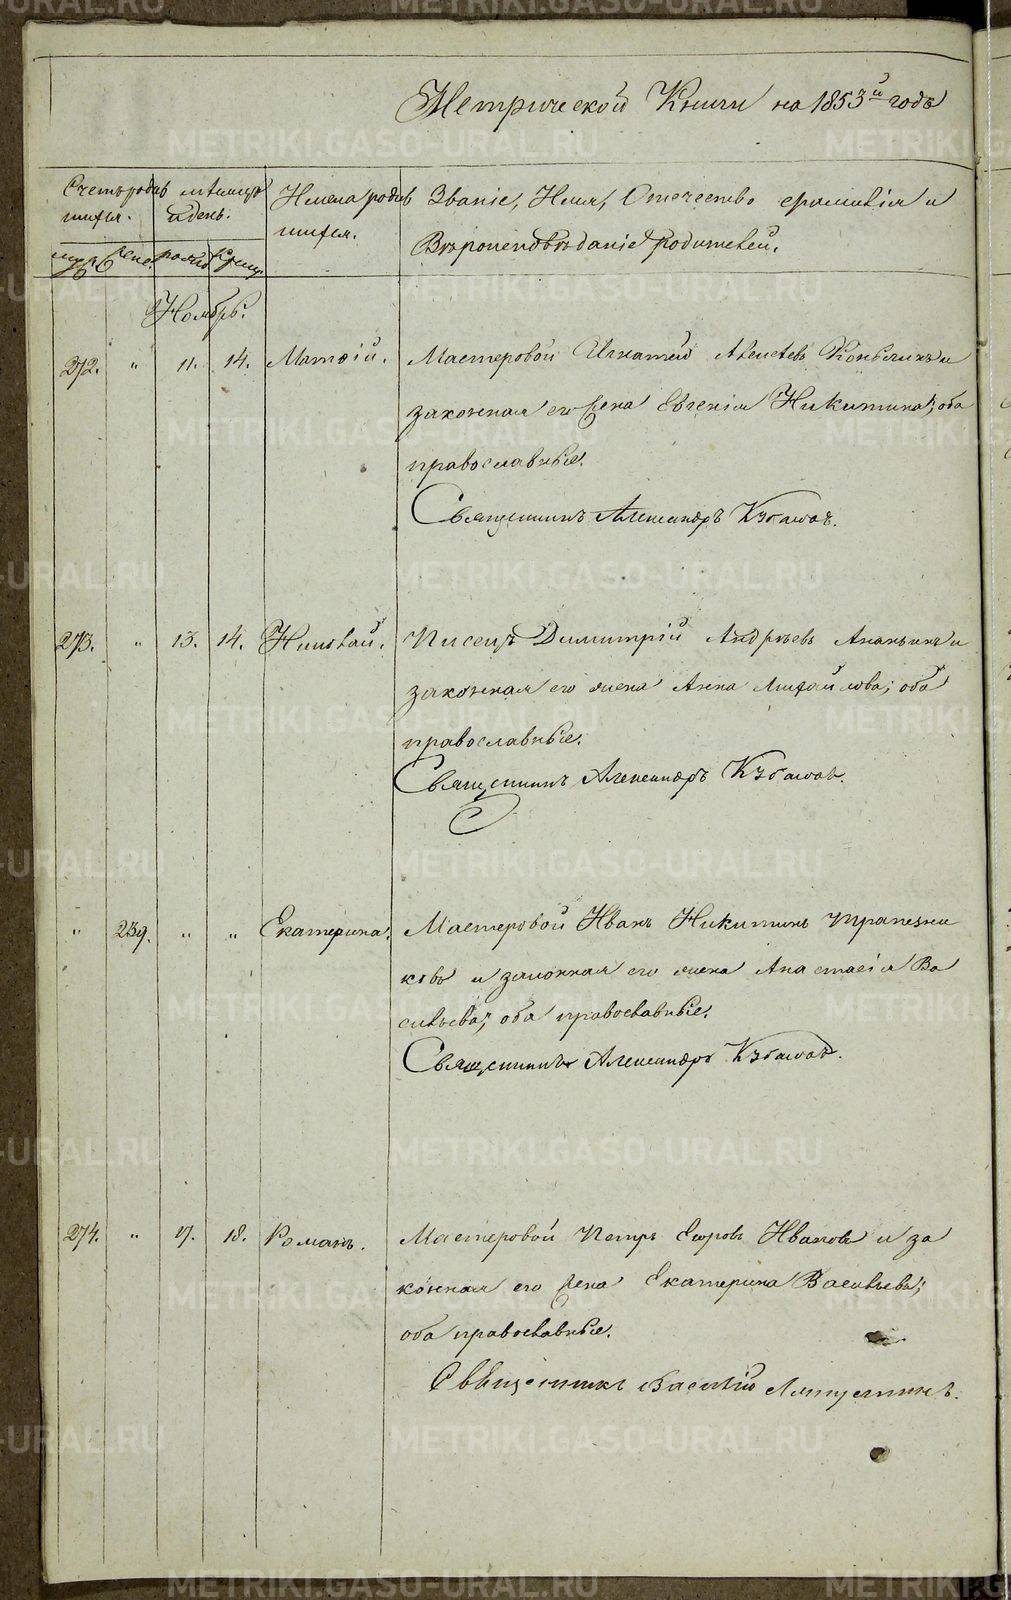 Метрической Книги на 1853й годъ
Счетъ родив мѣсяцъ Имена родив Званіе, Имя, Отечество фамилія и
шихся. и день. шихся. Вѣроисповѣданіе родителей.
муж. жен. рожд. крещ.
Ноябрь.
272. " 11. 14. Матѳій. Мастеровой Игнатий Алексѣевъ и
законная его жена Евгенія Никитина; оба
православные.
Священникъ Александръ
273. " 13. 14. Николай. Писецъ Димитрій Андреевъ Ананьинъ и
законная его жена Анна Михайлова; оба
православные.
Священникъ Александръ
" 239. " " Екатерина. Мастеровой Иванъ Никитинъ Трапезни
ковъ и законная его жена Анастасія Ва
сильева; оба православные.
Священникъ Александръ
274. " 17. 18. Романъ. Мастеровой Петръ Егоровъ Ивановъ и за
конная его жена Екатерина Васильева;
оба православные.
Священникъ Василій
METRIKI.GASO-URAL.RU